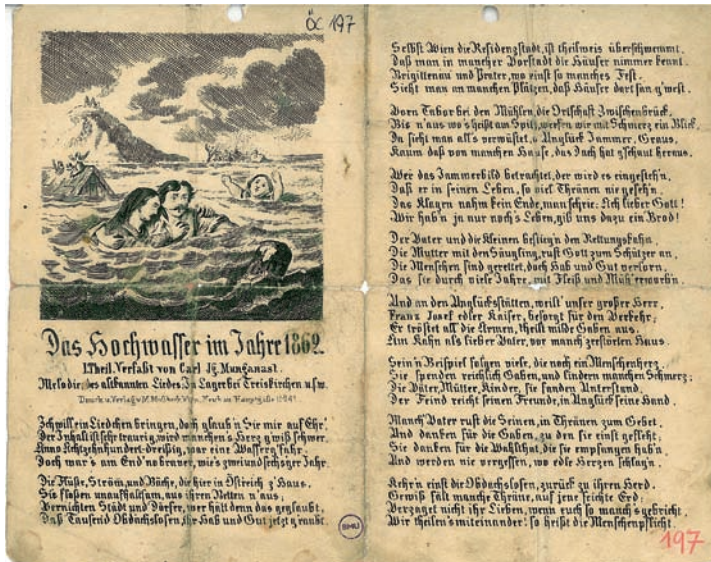 ÖC 197
Das Hochwasser im Jahre 1862.
1. Theil. Verfaßt von Carl Jg. Munganast.
Melodie, des altbekannten Liedes: In Lager bei Treiskirchen u.s.w.
Druck u. Verlag v. M. Moßbeck Wien,
Ich will ein Liedchen bringen, doch glaub'n Sie mir auf Ehr',
Der Inhalt ist sehr traurig, wird manchen's Herz g'wiß schwer.
Anno Achtzehnhundert-Dreißig, war eine Wasserg'fahr.
Doch war's am End' no braver, wie's zweiundsechz'ger Jahr.
Die Flüße, Ström, und Bäche, die hier in Östreich z' Haus.
Sie floßen unaufhaltsam, aus ihren Betten n'aus;
Vernichten Städt und Dörfer, wer hätt denn das geglaubt,
Daß Tausend Obdachslosen, ihr Hab und Gut jetzt g'raubt.
BMU
Selbst Wien die Residenzstadt, ist theilweis überschwemmt.
Daß man in mancher Vorstadt die Häuser nimmer kennt.
Brigittenau und Prater, wo einst so manches Fest.
Sieht man an manchen Plätzen, daß Häuser dort san g'west.
Vorn Tabor bei den Mühlen, die Ortschaft Zwischenbrück.
Bis n'aus wo's heißt am Spitz, werfen wir mit Schmerz ein Blick.
Da sieht man all's verwüstet, o Unglück Jammer, Graus,
Kaum daß von manchen Hause, das Dach hat g'schaut heraus.
Wer das Jammerbild betrachtet, der wird es eingesteh'n,
Daß er in seinen Leben, so viel Thränen nie geseh'n.
Das Klagen nahm kein Ende, man schrie: Ach lieber Gott!
Wir hab'n ja nur noch's Leben, gib uns dazu ein Brod!
Der Vater und die Kleinen bestieg'n den Rettungskahn,
Die Mutter mit den Säugling, ruft Gott zum Schützer an,
Die Menschen sind gerettet, doch Hab und Gut verlorn,
Das sie durch viele Jahre, mit Fleiß und Müh' erworb'n.
Und an den Unglücksstätten, weilt' unser großer Herr,
Franz Josef edler Kaiser, besorgt für den Verkehr;
Er tröstet all' die Armen, theilt milde Gaben aus.
Am Kahn als lieber Vater, vor manch zerstörten Haus.
Sein'n Beispiel folgen viele, die noch ein Menschenherz,
Sie spenden reichlich Gaben, und lindern manchen Schmerz;
Die Väter, Mütter, Kinder, sie fanden Unterstand.
Der Feind reicht seinen Freunde, in Unglück seine Hand.
Manch' Vater ruft die Seinen, in Thränen zum Gebet.
Und danken für die Gaben, zu den sie einst gefleht;
Sie danken für die Wohlthat, die sie empfangen hab'n.
Und werden nie vergessen, wo edle Herzen schlag'n.
Kehr'n einst die Obdachslosen, zurück zu ihren Herd
Gewiß fält manche Thräne, auf jene feichte Erd;
Verzaget nicht ihr Lieben, wenn euch so manch's gebricht,
Wir theilen's miteinander! so heißt die Menschenpflicht.
197